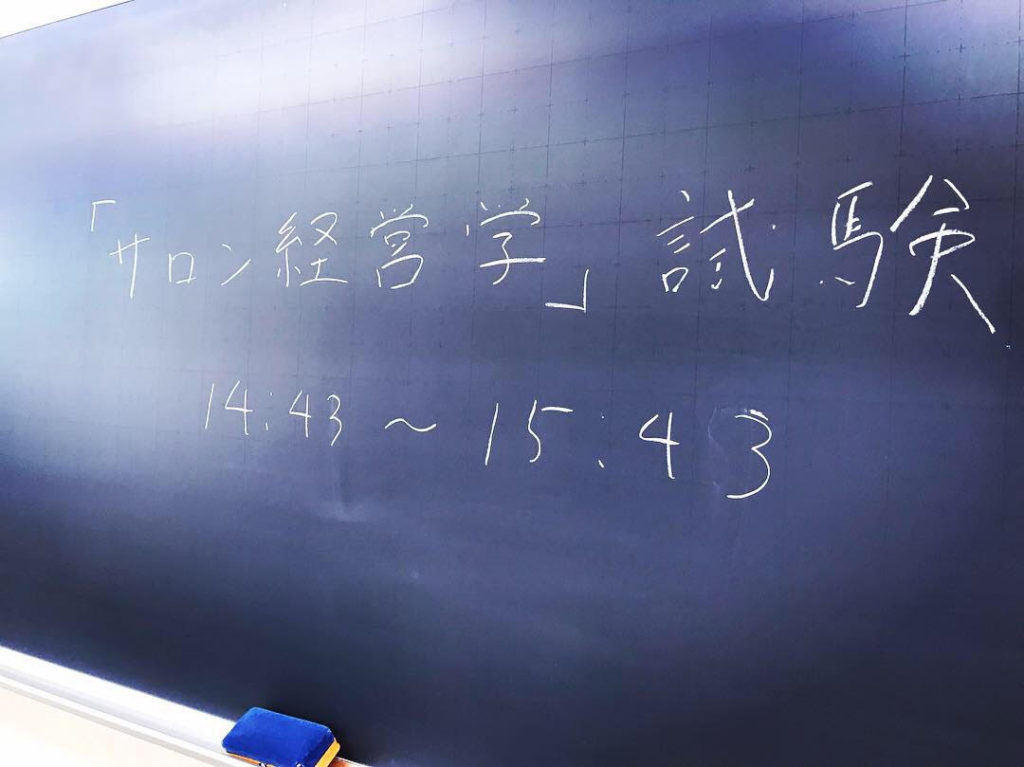 「サロン経営学」試験
14:43～15:43